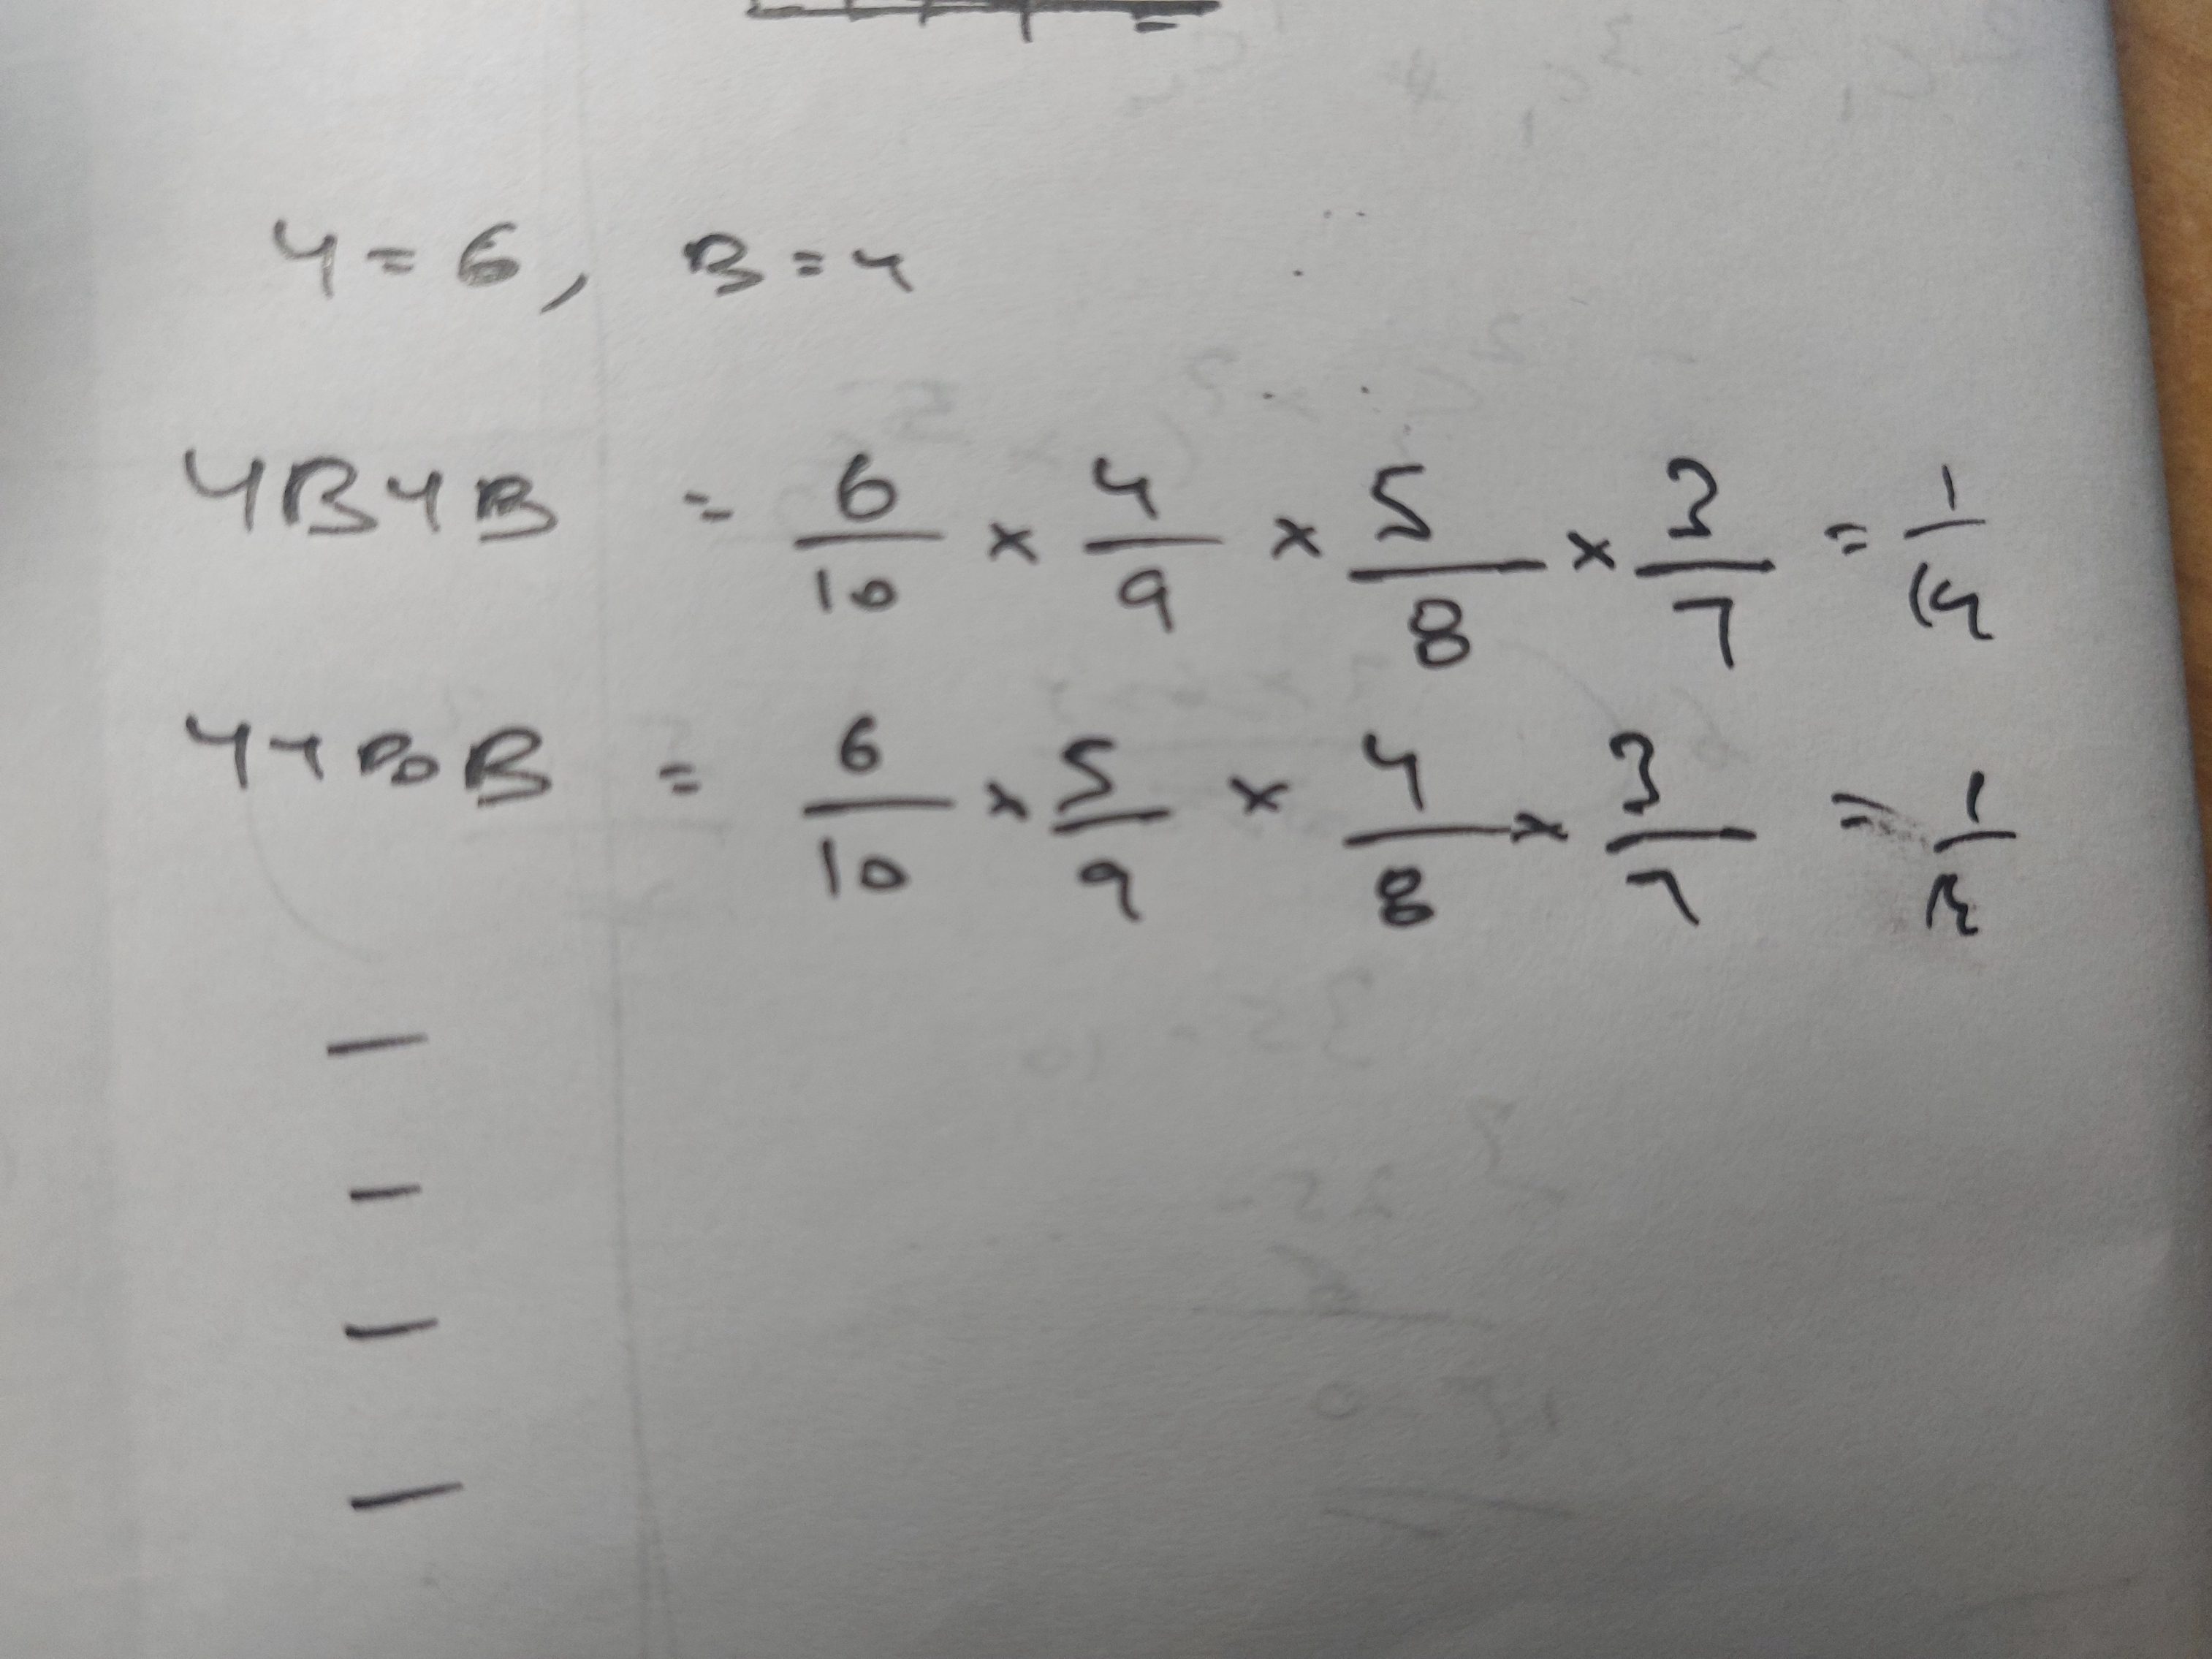 Y = 6, B = 4
YBYB = 6/10 × 4/9 × 5/8 × 3/7 = 1/14
YYBB = 6/10 × 5/9 × 4/8 × 3/7 = 1/
—
—
—
—